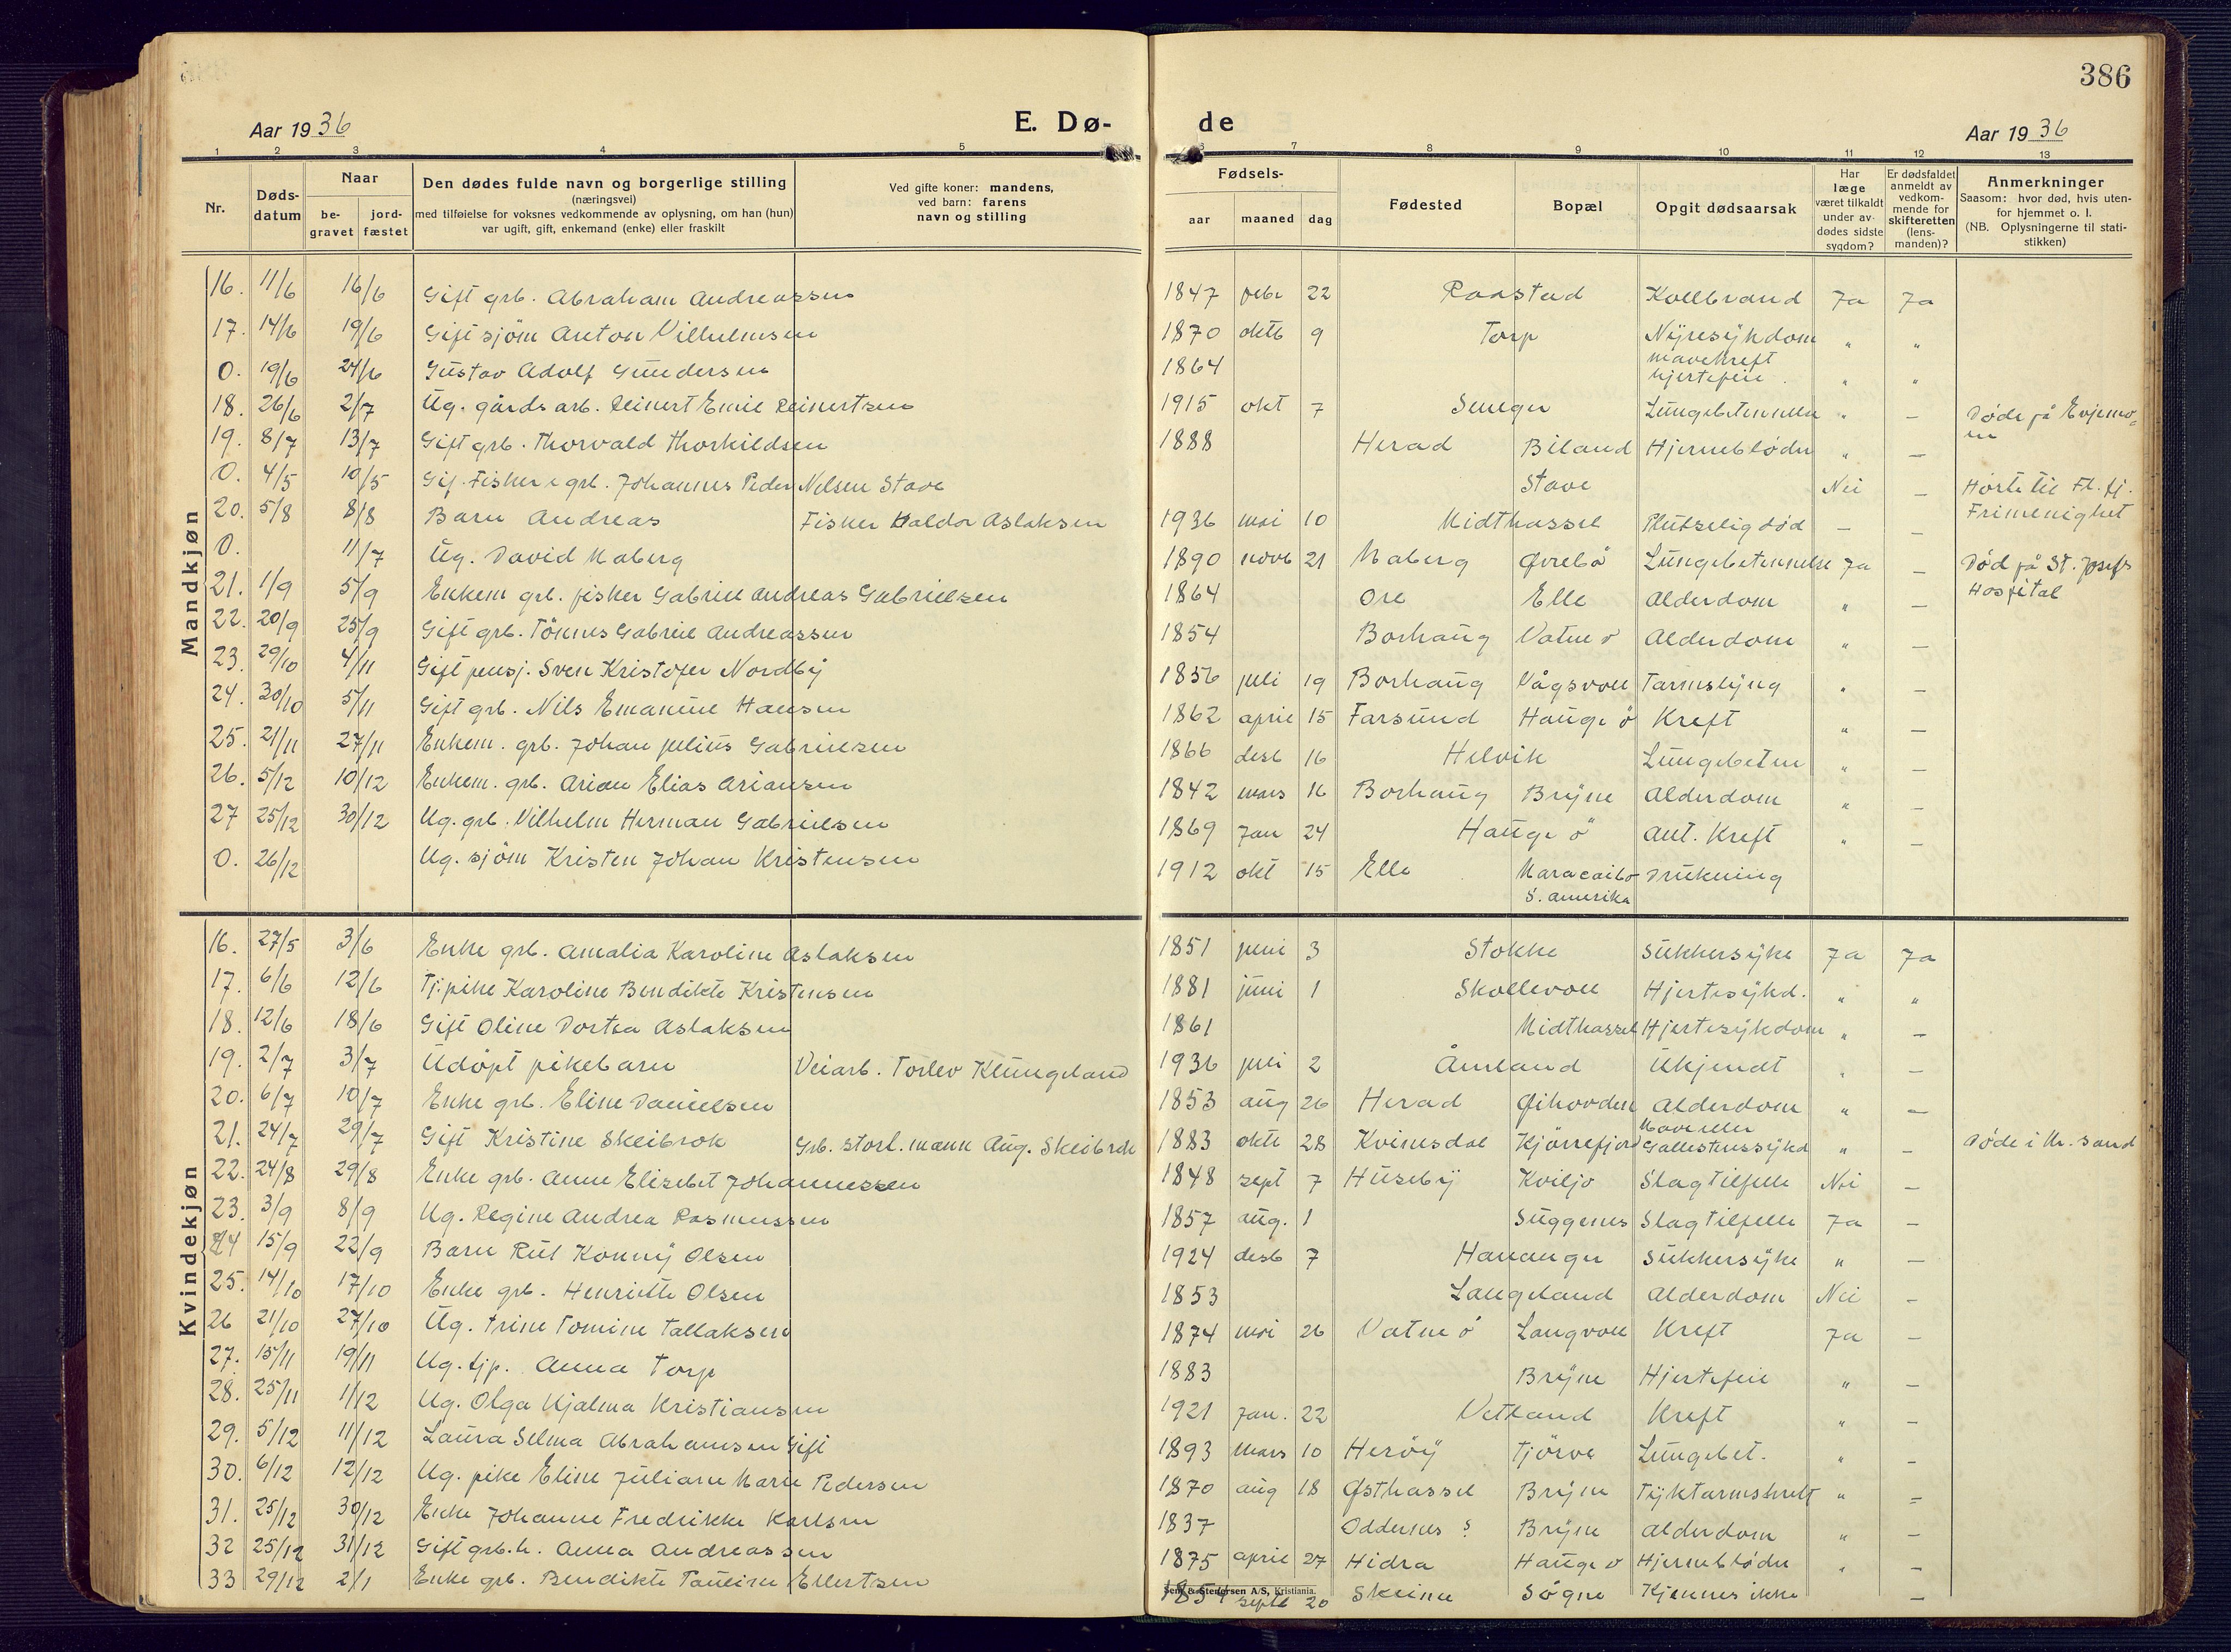 386
Aar 1936
E. Dø-
de
Aar 1936
1 2 3 4 5 6 7 8 9 10 11 12 13
Nr.
Døds-
datum
Naar
be-
gravet
jord-
fæstet
Den dødes fulde navn og borgerlige stilling
(næringsvei)
med tilføielse for voksnes vedkommende av oplysning, om han (hun)
var ugift, gift, enkemand (enke) eller fraskilt
Ved gifte koner: mandens,
ved barn: farens
navn og stilling
Fødsels-
aar maaned dag
Fødested
Bopæl
Opgit dødsaarsak
Har
læge
været tilkaldt
under av-
dødes sidste
sygdom?
Er dødsfaldet
anmeldt av
vedkom-
mende for
skifteretten
(lens-
manden)?
Anmerkninger
Saasom: hvor død, hvis uten-
for hjemmet o. l.
(NB. Oplysningerne til stati-
stikken)
Mandkjøn
16. 11/6 16/6 Gift grb. Abraham Andreassen 1847 febr 22 Raastad Kollbrand Ja Ja
17. 14/6 19/6 Gift sjøm Anton Vilhelmsen 1870 oktb 9 Torp Nyresykdom " "
0. 19/6 24/6 Gustav Adolf Gundersen 1864 mavekreft
hjertefeil " "
18. 26/6 2/7 Ug. gårdsarb. Reinert Emil Reinertsen 1915 okt 7 Lungebetennelse " – Døde på Evjemo-
en
19. 8/7 13/7 Gift grb. Thorvald Thorkildsen 1888 Herad Biland Hjerneblødn " –
0. 4/5 10/5 Gif. Fisker e grb. Johannes Peder Nilsen Stave Stave Nei – Hørte til Fl. fj.
Frimenighet
20. 5/8 8/8 Barn Andreas Fisker Haldor Aslaksen 1936 mai 10 Midthassel Plutselig død – –
0. 11/7 Ug. David Maberg 1890 novb 21 Maberg Øvrebø Lungebetennelse Ja – Død på St. Josefs
Hospital
21. 1/9 5/9 Enkem grb. fisker Gabriel Andreas Gabrielsen 1864 Ore Elle Alderdom " –
22. 20/9 25/9 Gift grb. Tønnes Gabriel Andreassen 1854 Borhaug Vatne ø Alderdom " –
23. 29/10 4/11 Gift pensj. Sven Kristofer Nordby 1856 juli 19 Borhaug Vågsvoll Tarmslyng " –
24. 30/10 5/11 Gift grb. Nils Emanuel Hansen 1862 april 15 Farsund Hauge ø Kreft " –
25. 21/11 27/11 Enkem. grb. Johan Julius Gabrielsen 1866 desb 16 Helvik Lungebeten " –
26. 5/12 10/12 Enkem. grb. Arian Elias Ariansen 1842 mars 16 Borhaug Bryne Alderdom " –
27 25/12 30/12 Ug. grb. Vilhelm Herman Gabrielsen 1869 Jan 24 Hauge ø Ant. Kreft " –
0. 26/12 Ug. sjøm Kristen Johan Kristensen 1912 okt 15 Elle Maracaibo
S. amerika Drukning
Kvindekjøn
16. 27/5 3/6 Enke grb. Amalia Karoline Aslaksen 1851 juni 3 Stokke Sukkersyke Ja Ja
17. 6/6 12/6 Tj.pike Karoline Bendikte Kristensen 1881 juni 1 Skollevoll Hjertesykd. " "
18. 12/6 18/6 Gift Oline Dortea Aslaksen 1861 Midthassel Hjertesykdom " –
19. 2/7 3/7 Udøpt pikebarn Veiarb. Torlev Klungeland 1936 juli 2 Åmland Ukjendt " –
20. 6/7 10/7 Enke grb. Eline Danielsen 1853 aug 26 Herad Øihovden Alderdom " –
21. 24/7 29/7 Gift Kristine Skeibrok Grb. storl. mann Aug. Skeibrok 1883 oktb 28 Kvinesdal Kjørrefjord Mave eller
Gallestenssykd " – døde i Kr. sand
22. 24/8 29/8 Enke grb. Anne Elisebet Johannessen 1848 sept 7 Huseby Kviljo Slagtilfelle Nei –
23. 3/9 8/9 Ug. Regine Andrea Rasmussen 1857 aug. 1 Suggenes Slagtilfelle Ja –
24 15/9 22/9 Barn Rut Konny Olsen 1924 desb 7 Hananger Sukkersyke " –
25. 14/10 17/10 Enke grb. Henriette Olsen 1853 Langeland Alderdom Nei –
26 21/10 27/10 Ug. Trine Tomine Tallaksen 1874 mai 26 Vatne ø Langvoll Kreft Ja –
27. 15/11 19/11 Ug. tjp. Anna Torp 1883 Bryne Hjertefeil " –
28. 25/11 1/12 Ug. Olga Hjalma Kristiansen 1921 Jan. 22 Vetland Kreft " –
29. 5/12 11/12 Laura Selma Abrahamsen Gift 1893 mars 10 Herøy Tjørve Lungebet. " –
30. 6/12 12/12 Ug. pike Eline Juliane Marie Pedersen 1870 aug 18 Østhassel Bryne Tyktarmskreft " –
31. 25/12 30/12 Enke Johanne Fredrikke Karlsen 1837 Oddernes ? Bryne Alderdom " –
32 25/12 31/12 Gift grb. h. Anna Andreassen 1875 april 27 Hidra Hauge ø Hjerneblødn " –
33 29/12 2/1 Enke grb. Bendikte Pauline Ellertsen 1854 septb 20 Skeime Søgne Kjennes ikke –
Sem & Stenersen A/S, Kristiania.